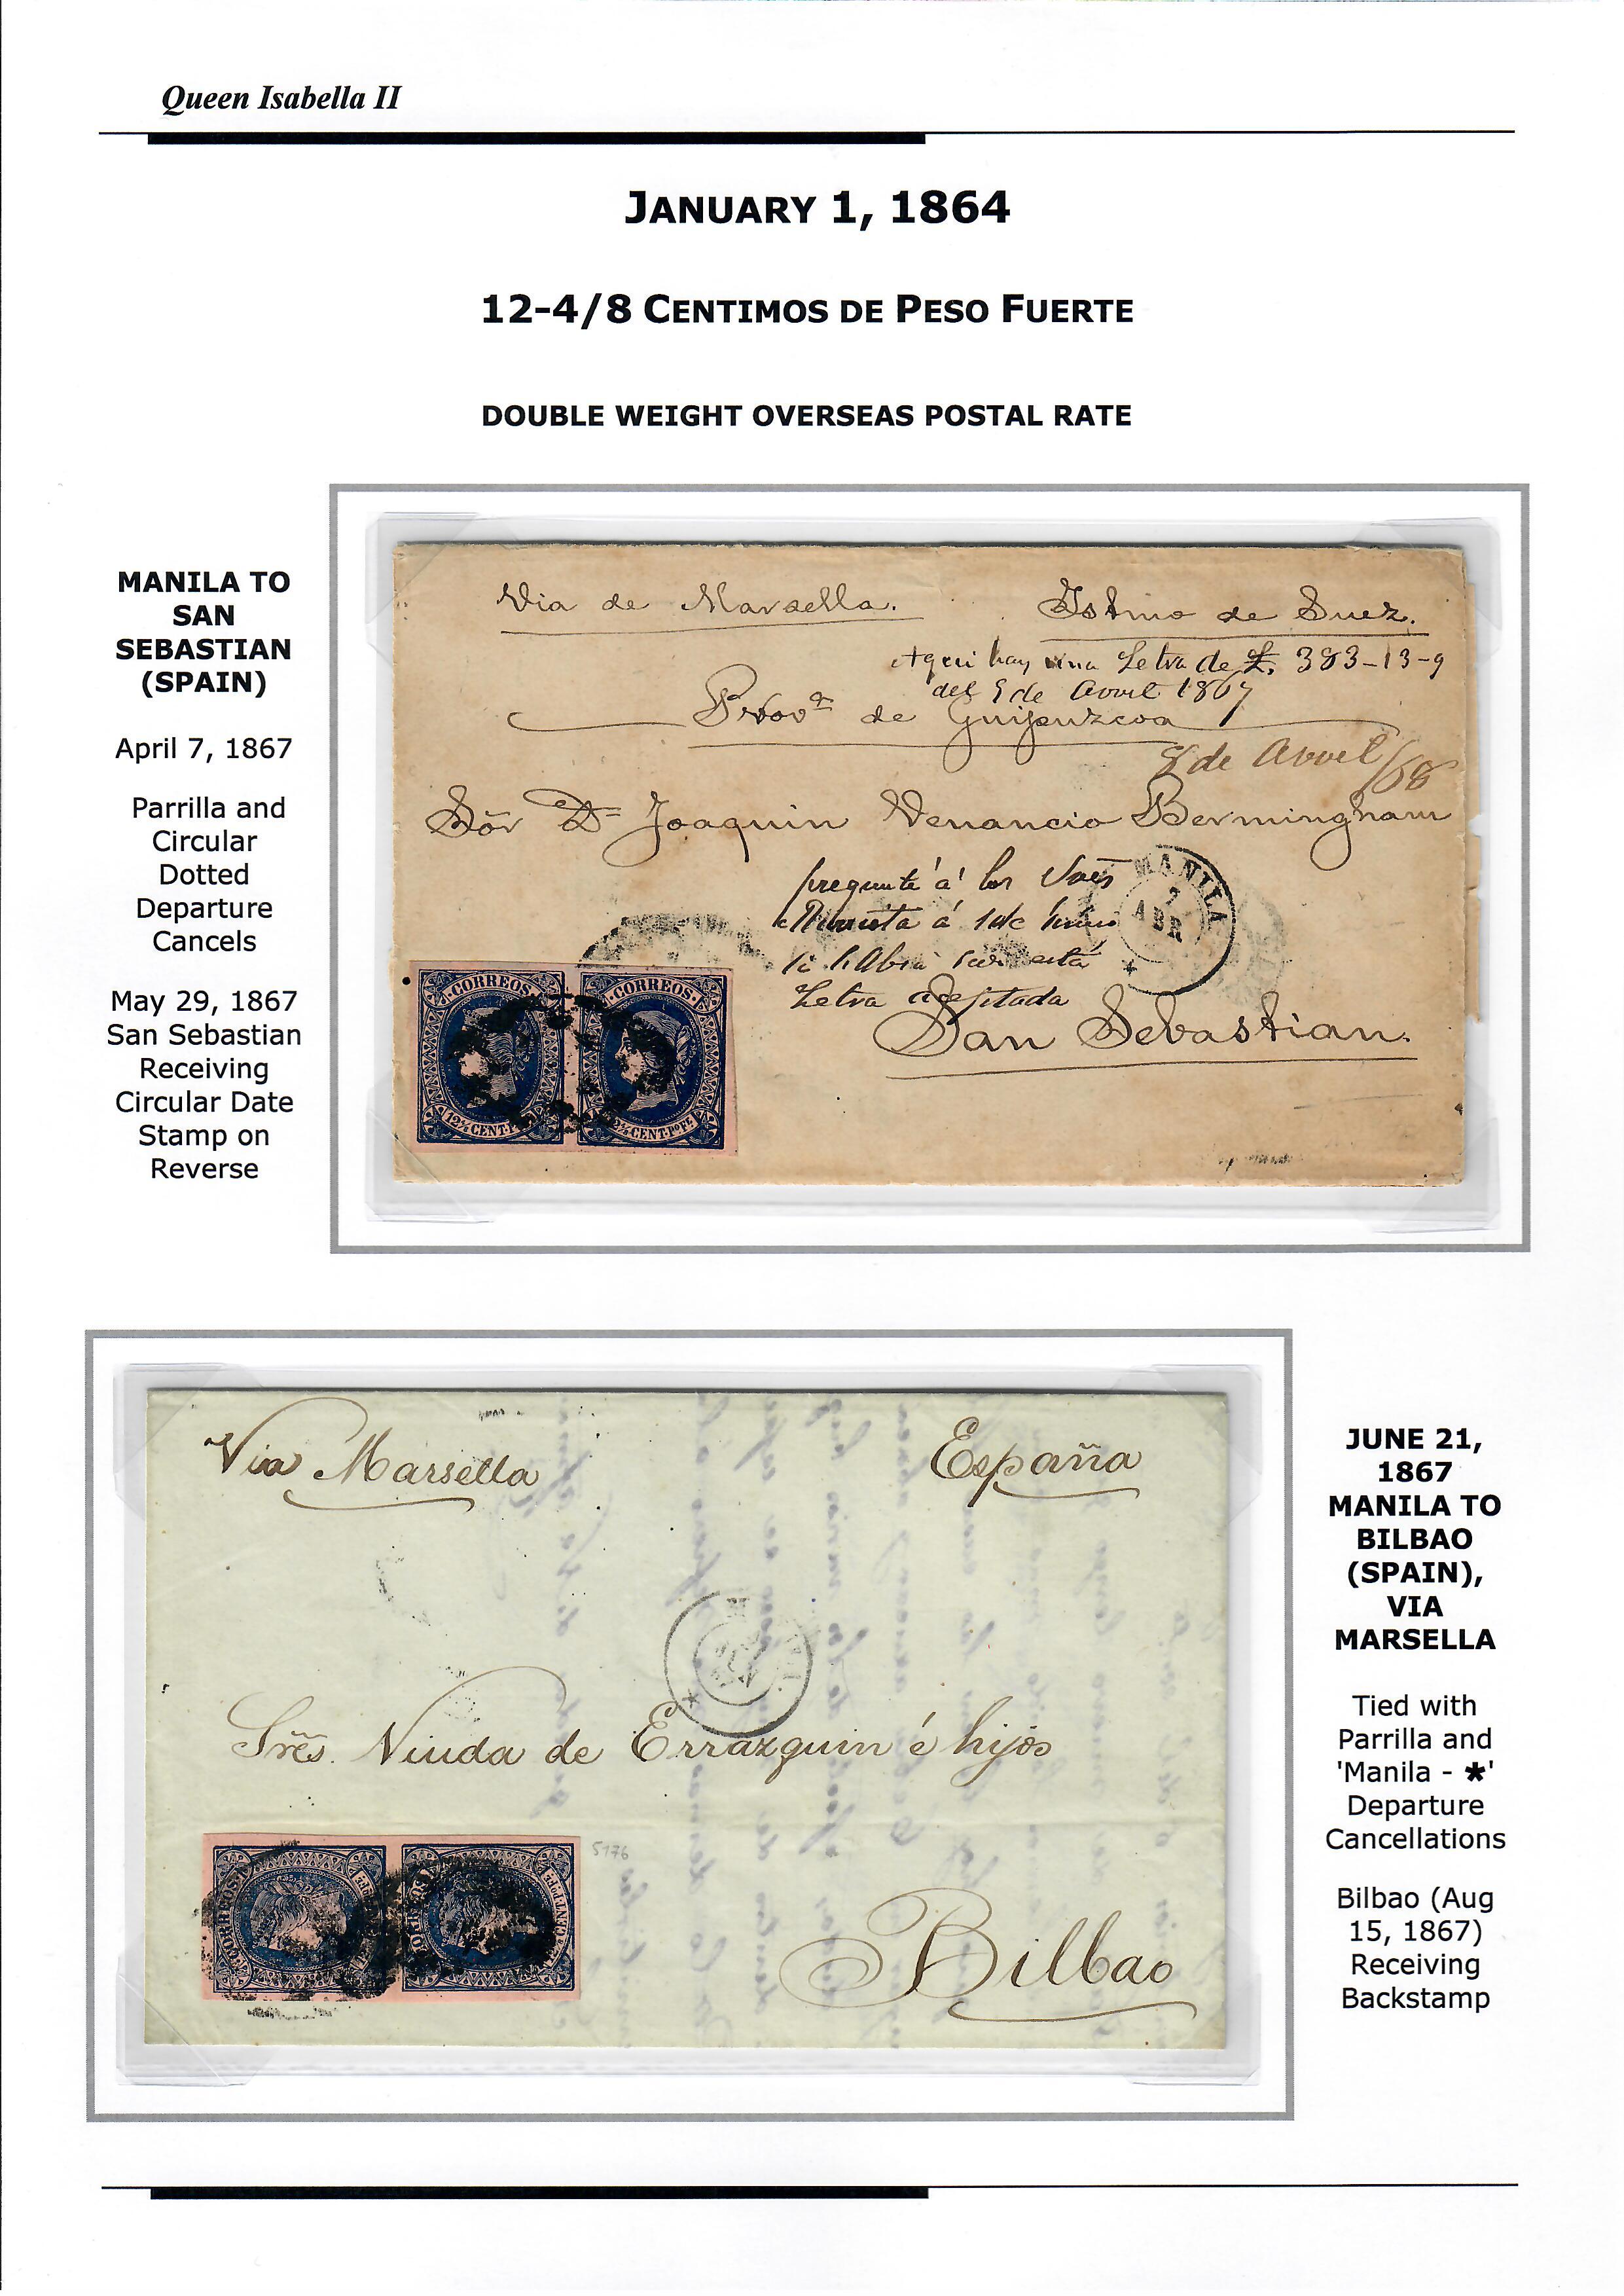 Queen Isabella II
JANUARY 1, 1864
12-4/8 CENTIMOS DE PESO FUERTE
DOUBLE WEIGHT OVERSEAS POSTAL RATE
MANILA TO
SAN
SEBASTIAN
(SPAIN)
April 7, 1867
Parrilla and
Circular
Dotted
Departure
Cancels
May 29, 1867
San Sebastian
Receiving
Circular Date
Stamp on
Reverse
Via de Marsella.
Istmo de Suez.
Aqui hay una Letra de £ 383-13-9
del 9 de Avril 1867
Provª de Guipuzcoa
8 de Avril/68
Sör Dn Joaquin Venancio Bermingham
pregunté á los
á
esta
Letra aceptada
MANILA
7
ABR
San Sebastian.
CORREOS
12 4/8 CENT. P
CORREOS
4/8 CENT. Po Fe
Via Marsella
España
Sres. Viuda de Errazquin é hijos
5176
CORREOS
CORREOS
CENT. Po Fe
Bilbao
JUNE 21,
1867
MANILA TO
BILBAO
(SPAIN),
VIA
MARSELLA
Tied with
Parrilla and
'Manila - *'
Departure
Cancellations
Bilbao (Aug
15, 1867)
Receiving
Backstamp